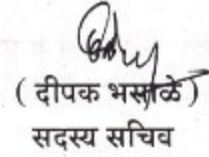 ( दीपक भसाळे )
सदस्य सचिव